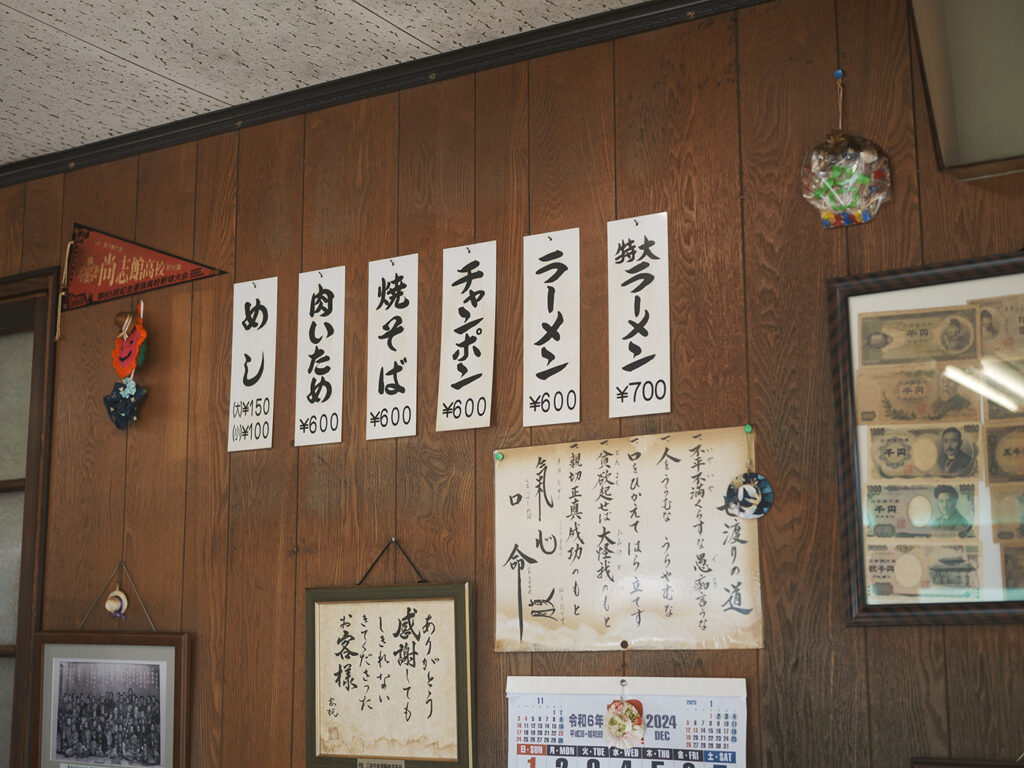 尚志館高校
第85回記念選抜高校野球大会
めし
(大)¥150
(小)¥100
肉いため
¥600
焼そば
¥600
チャンポン
¥600
ラーメン
¥600
特大
ラーメン
¥700
世渡りの道
一不平不満ぐらすな愚痴言うな
一人をうらむな うらやむな
一口をひかえて はら立てず
一貪欲起せば大怪我のもと
一親切正真成功のもと
氣 心
口 命
ありがとう
感謝しても
しきれない
きてくださった
お客様
11
令和6年
平成36・昭和99
2024
DEC
2025
1
日・SUN
月・MON
火・TUE
水・WED
木・THU
金・FRI
土・SAT
1 2 3 4 5 6 7
千円
千円
1000
千円
1000
千円
弐千円